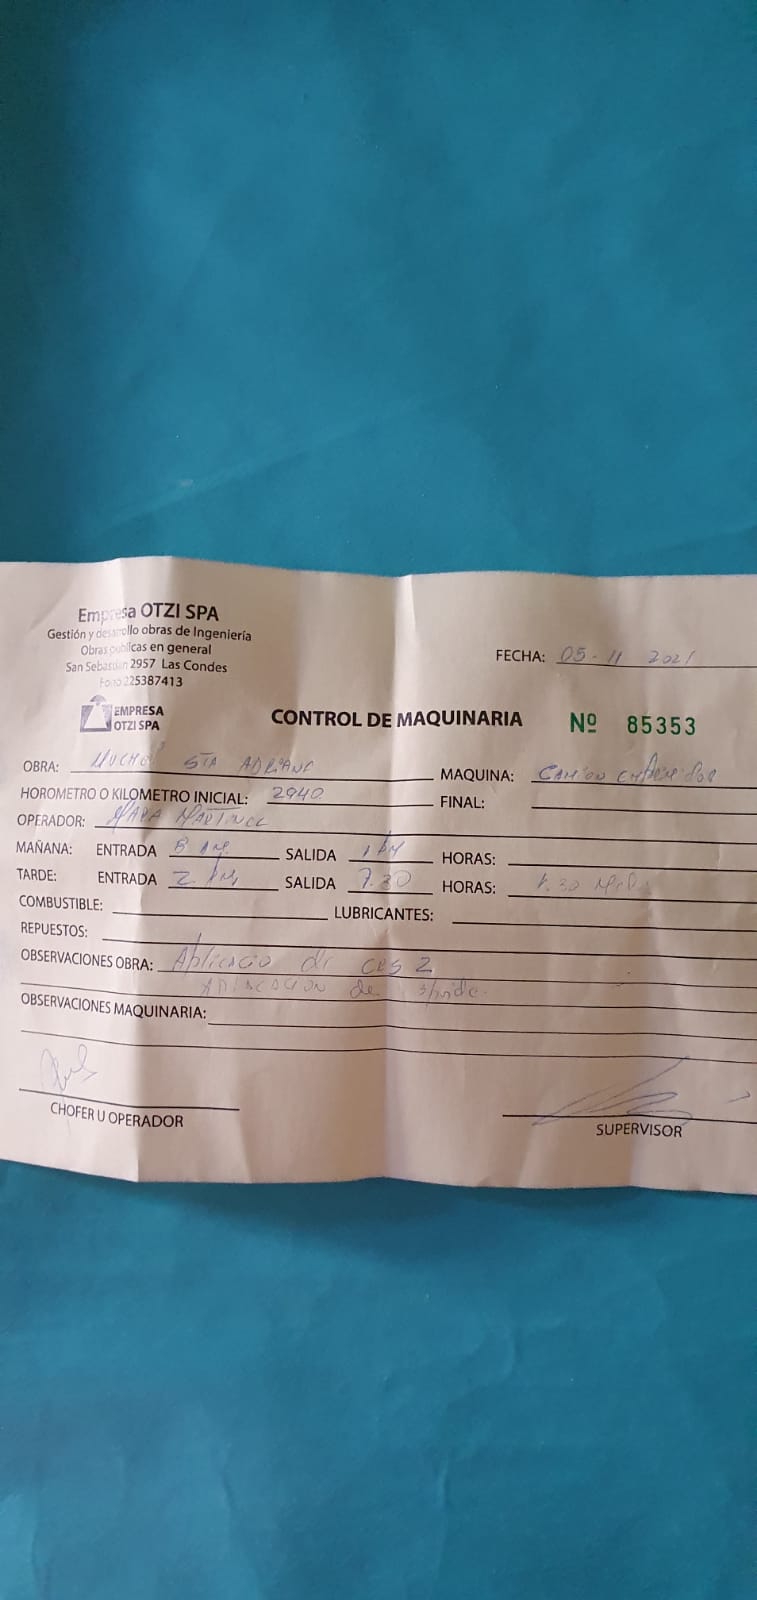 Empresa OTZI SPA
Gestión y desarrollo obras de Ingeniería
Obras públicas en general
San Sebastian 2957 Las Condes
Fono 225387413
EMPRESA
OTZI SPA
FECHA: 05-11 2021
CONTROL DE MAQUINARIA Nº 85353
OBRA: STA ADRIANA
MAQUINA: CAMION
HOROMETRO O KILOMETRO INICIAL: 2940
FINAL:
OPERADOR:
MAÑANA: ENTRADA 8 AM SALIDA 1 PM HORAS:
TARDE: ENTRADA 2 PM SALIDA 7.30 HORAS:
COMBUSTIBLE: LUBRICANTES:
REPUESTOS:
OBSERVACIONES OBRA: Aplicacio de
de
OBSERVACIONES MAQUINARIA:
CHOFER U OPERADOR
SUPERVISOR